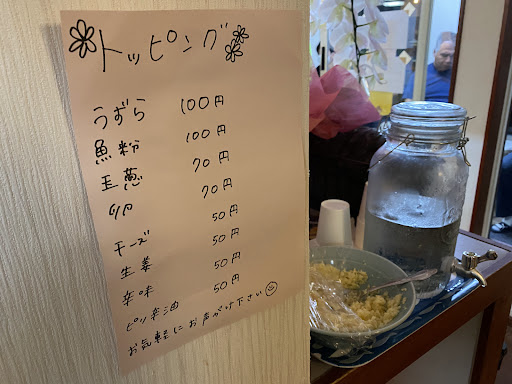 トッピング
うずら 100円
魚粉 100円
玉葱 70円
卵 70円
チーズ 50円
生姜 50円
辛味 50円
ピリ辛油 50円
お気軽にお声がけ下さい